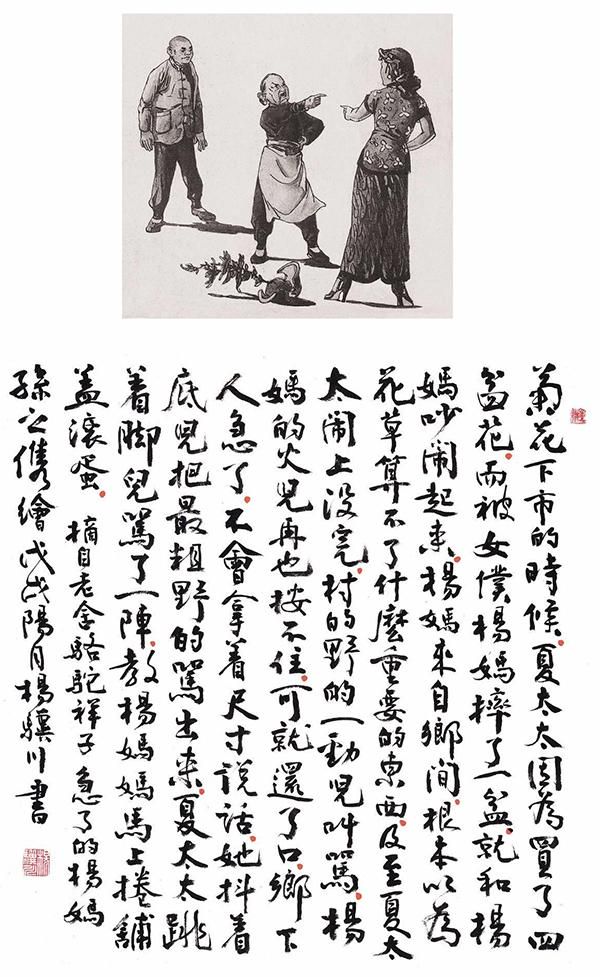 菊花下市的時候夏太太因為買了四
盆花而被女僕楊媽摔了一盆就和楊
媽吵鬧起來楊媽來自鄉間根本以為
花草算不了什麼重要的東西及至夏太
太鬧上沒完村的野的一勁兒叫罵楊
媽的火兒再也按不住可就還了口鄉下
人急了不會拿着尺寸說話她抖着
底兒把最粗野的罵出來夏太太跳
着脚兒罵了一陣教楊媽媽馬上捲舖
盖滚蛋 摘自老舍駱駝祥子 急了的楊媽
孫之儁繪戊戌陽月楊驥川書